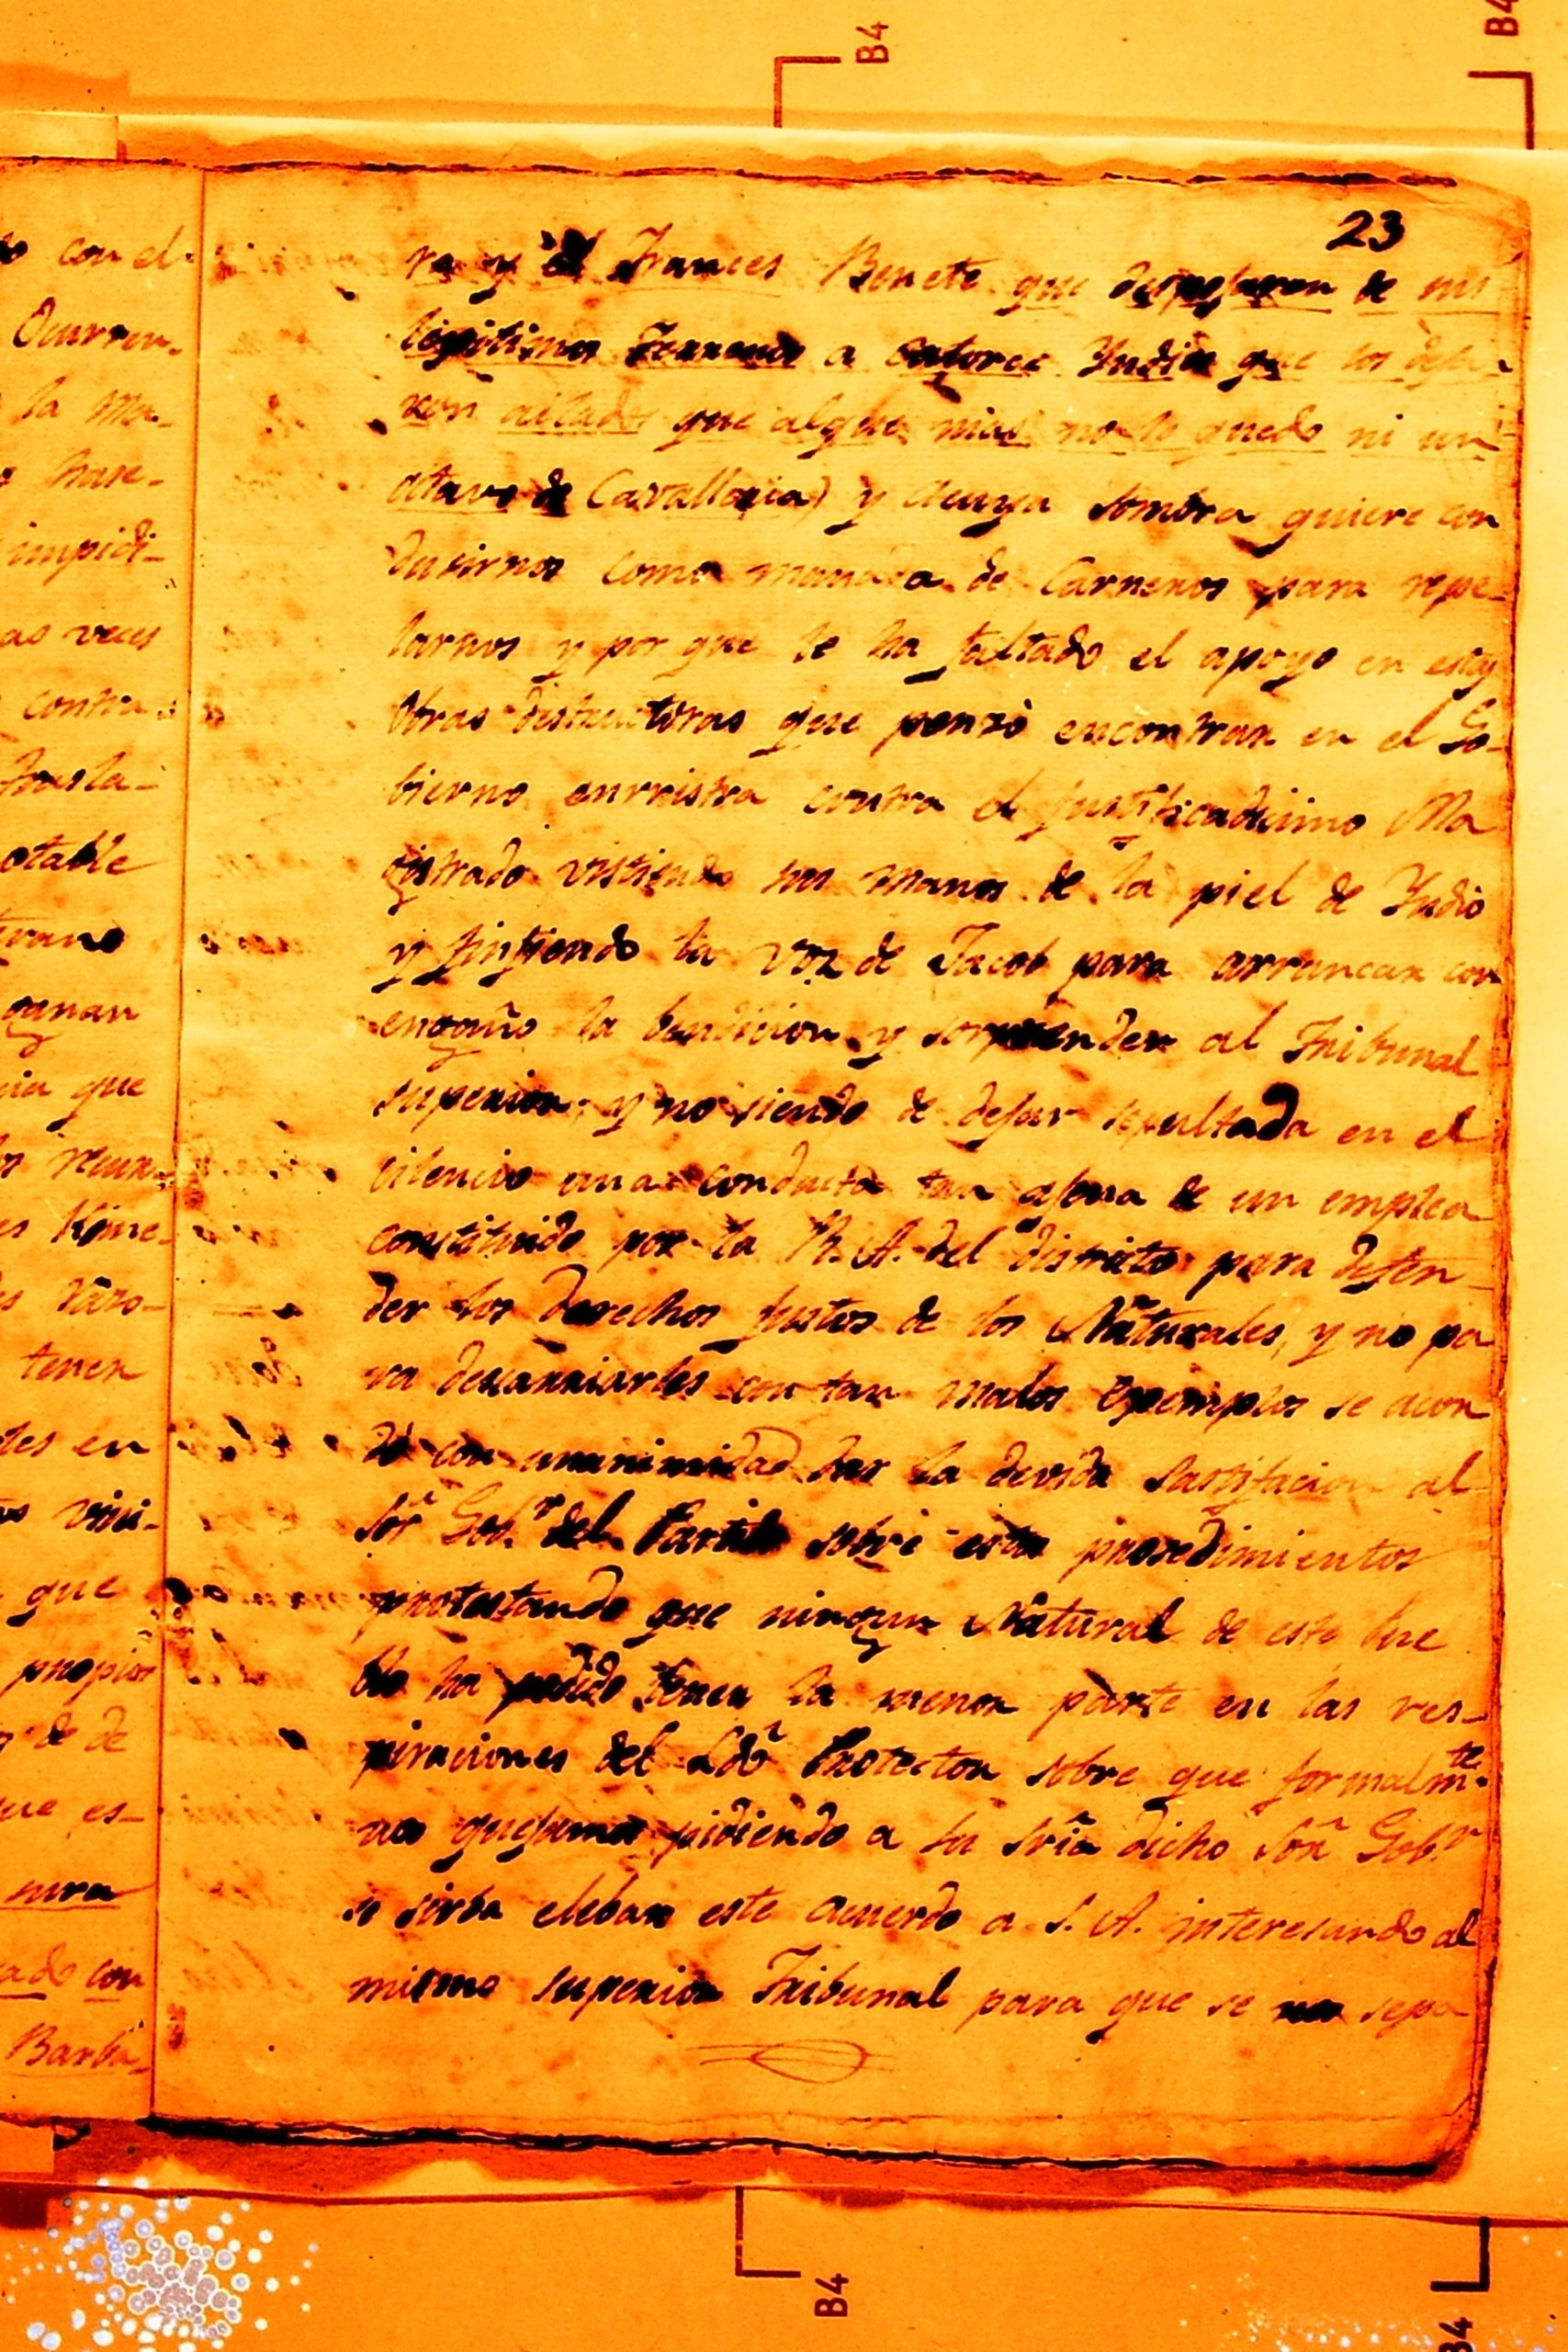 B4
B4
23
ra y el Frances Benete que despojaron de sus
legitimos Terrenos a catorce Yndios que los deja-
ron aislados que alque mas no le quedo ni un
otavo de Cavalleria) y acuya sombra quiere con
dusirnos como manada de Carneros para repe-
larnos y por que le ha faltado el apoyo en estas
obras destructoras que penzó encontrar en el Go-
bierno enrristra contra el justificadicimo Ma
gistrado vistiendo sus manos de la piel de Yndio
y finjiendo la voz de Jacob para arrancar con
engaño la bendicion y sorprender al Tribunal
superior; y no siendo de dejar sepultada en el
silencio una conducta tan ajena de un emplea
constituido por la R. A. del distrito para defen-
der los derechos justos de los Naturales, y no pa
ra descarriarles con tan malos egemplos se acor
dó con unanimidad dar la devida satisfacion al
Sor. Gobr. del Partido sobre estos prosedimientos
protestando que ningun Natural de este Pue
blo ha podido tener la menor parte en las res-
piraciones del Ldo. Protector sobre que formalmte.
nos quejamos pidiendo a su Sria dicho Sor. Gobr.
se sirba elebar este acuerdo a S. A. interesando al
mismo superior Tribunal para que se sepa
con el
Ocurren-
la Ma-
hase-
impidi-
as veces
contra
trasla-
otable
ganan
que
recur-
tener
tes en
que
propios
de de
ue es-
ado con
Barba-
B4
B4